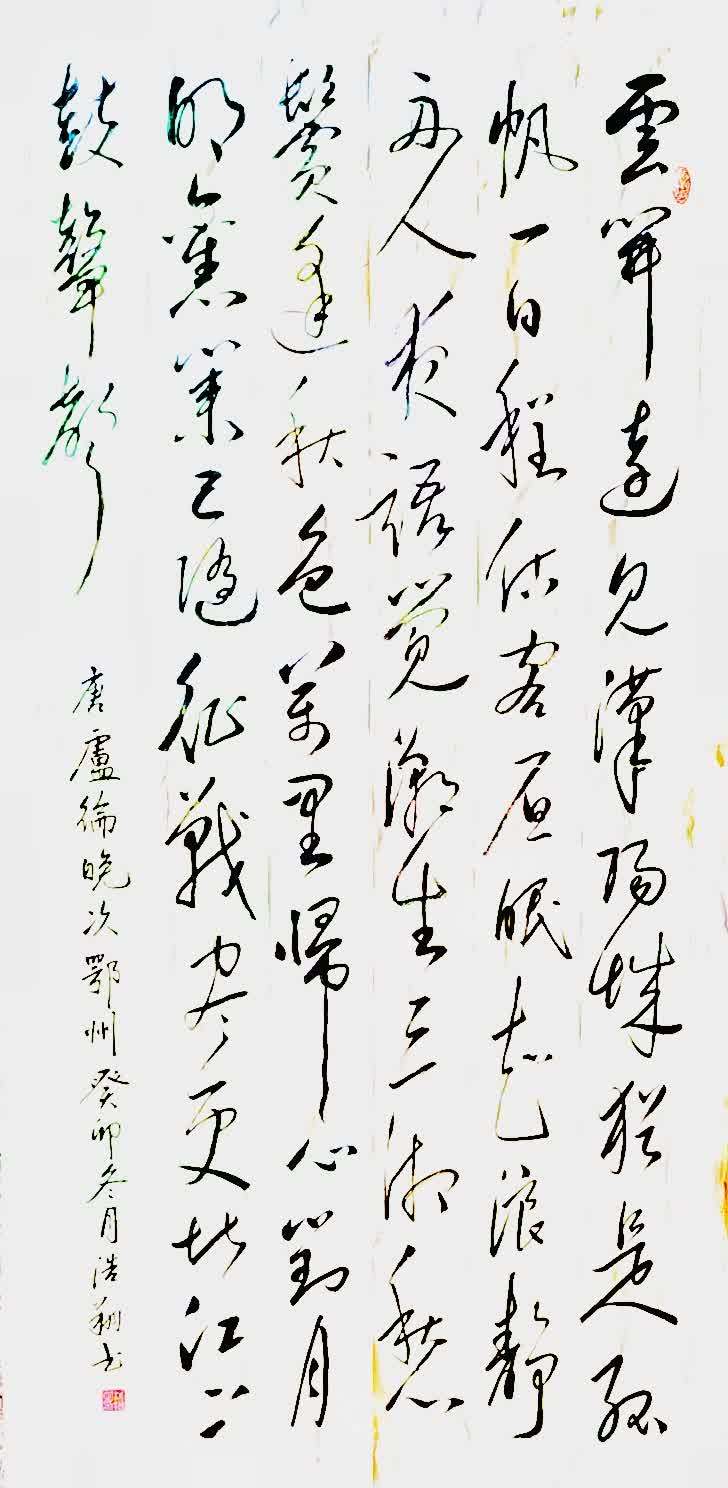 雲開遠見漢陽城猶是孤
帆一日程估客昼眠知浪靜
舟人夜語覺潮生三湘愁
鬢逢秋色萬里歸心對月
明舊業已隨征戰尽更堪江上
鼓鼙聲
唐盧綸晚次鄂州癸卯冬月浩翔书